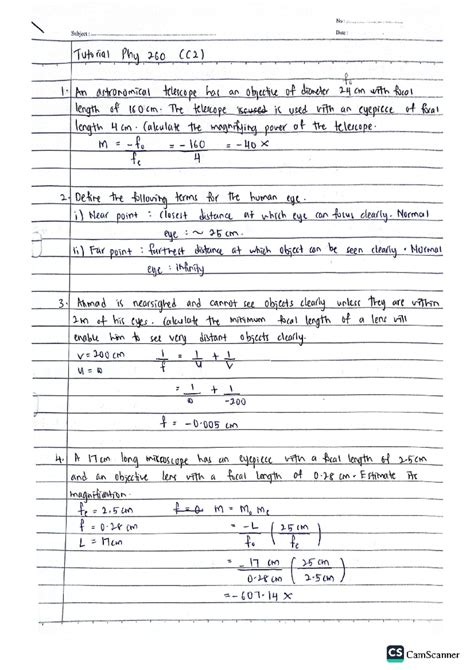 No :
Subject : Date :
Tutorial Phy 260 (C2)
fo
1. An astronomical telescope has an objective of diameter 24 cm with focal
length of 160 cm. The telescope is used with an eyepiece of focal
length 4 cm. Calculate the magnifying power of the telescope.
m = -fo = -160 = -40 x
fe 4
2. Define the following terms for the human eye.
i) Near point : closest distance at which eye can focus clearly. Normal
eye : ~ 25 cm.
ii) Far point : furthest distance at which object can be seen clearly. Normal
eye : infinity
3. Ahmad is nearsighted and cannot see objects clearly unless they are within
2m of his eyes. Calculate the minimum focal length of a lens will
enable him to see very distant objects clearly.
v = 200 cm 1/f = 1/u + 1/v
u = ∞
= 1/∞ + 1/-200
f = -0.005 cm
4. A 17cm long microscope has an eyepiece with a focal length of 2.5cm
and an objective lens with a focal length of 0.28 cm. Estimate its
magnification.
fe = 2.5 cm M = Mo Me
f = 0.28 cm = -L/fo (25 cm/fe)
L = 17cm
= -17/0.28 cm (25 cm/2.5 cm)
= -607.14 X
CS CamScanner